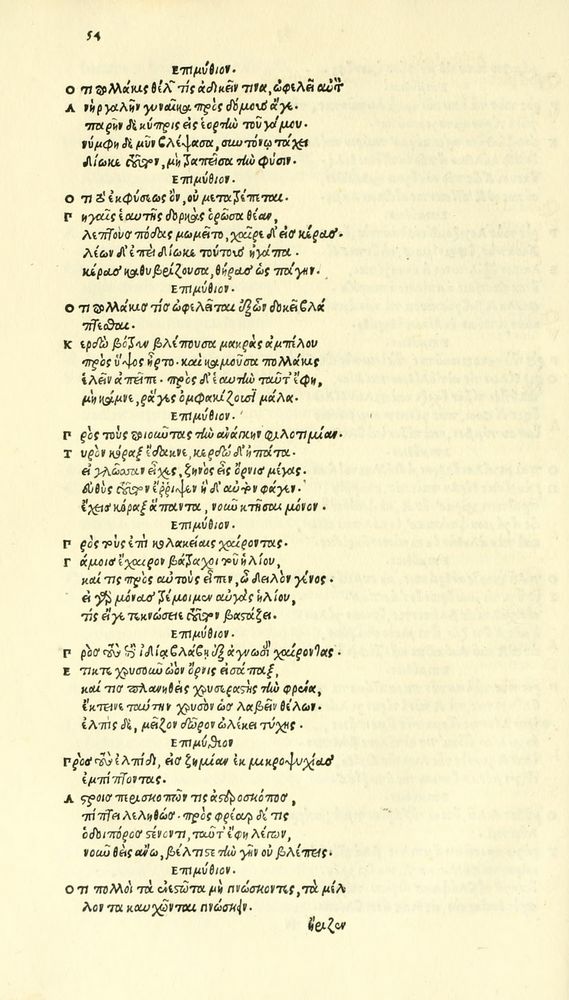 54
Επιμύθιον.
Ο τι πολλάκις θέλων τίς ἀδικεῖν τινα, ὠφελεῖ αὐτόν
Α νὴρ γαλῆν γυναῖκα πρὸς δόμους ἄγε.
παρῆν δὲ κύπρις εἰς ἑορτὴν τοῦ γάμου.
νύμφη δὲ μῦν βλέψασα, σὺν τόνῳ τάχει
δίωκε τοῦτον, μὴ λαπεῖσα τὴν φύσιν.
Επιμύθιον.
Ο τι τὸ ἐκ φύσεως ὂν, οὐ μετατρέπεται.
Π ηγαῖς ἑαυτῆς δορκὰς ὁρῶσα θέαν,
λεπτοὺς πόδας μωμεῖτο, χαῖρε δ' εἰς κέρας.
λέων δ' ἐπεὶ δίωκε τούτους ἠγάπα.
κέρας καθυβρίζουσα, θήρας ὡς πάγην.
Επιμύθιον.
Ο τι πολλάκις τίς ὠφελεῖται ἐξ ὧν δοκεῖ βλά
πτεσθαι.
Κ ερδὼ βότρυν βλέπουσα μακρᾶς ἀμπέλου
πρὸς ὕψος ἦρτο. καὶ καμοῦσα πολλάκις
ἑλεῖν ἀπεῖπε. πρὸς δ' ἑαυτὴν ταῦτ' ἔφη,
μὴ κάμνε, ῥᾶγες ὀμφακίζουσι μάλα.
Επιμύθιον.
Π ρὸς τοὺς ποιοῦντας τὴν ἀνάγκην φιλοτιμίαν.
Τ υρὸν κόραξ ἔδακνε, κερδὼ δ' ἠπάτα.
εἰ γλῶσσαν εἶχες, ζηνὸς εἶς ὄρνις μέγας.
εὐθὺς τοῦτον ἔρριψεν ἡ δ' αὐτὸν φάγεν.
ἔχεις κόραξ ἅπαντα, νοῦν κτῆσαι μόνον.
Επιμύθιον.
Π ρὸς τοὺς ἐπὶ κολακείαις χαίροντας.
Γ άμοις ἔχαιρον βάτραχοι τοῦ ἡλίου,
καί τις πρὸς αὐτοὺς εἶπεν, ὦ δειλὸν γένος.
εἰ γὰρ μόνας τρέμοιμεν αὐγὰς ἡλίου,
τίς εἴγε τεκνώσειε τοῦτον βαστάζει.
Επιμύθιον.
Π ρὸς τοὺς ἐπ' ἰδίᾳ βλάβῃ ἐξ ἀγνωσίας χαίροντας.
Ε τικτε χρυσοῦν ὠὸν ὄρνις εἰσάπαξ,
καί τις πλανηθεὶς χρυσεραστὴς τὴν φρένα,
ἔκτεινε ταύτην χρυσὸν ὡς λαβεῖν θέλων.
ἐλπὶς δὲ, μεῖζον δῶρον ὠλέκει τύχης.
Επιμύθιον
Πρὸς τοὺς ἐλπίδι, εἰς ζημίαν ἐκ μικροψυχίας
ἐμπίπτοντας.
Α στροις περισκοπῶν τις ἀστροσκόπος,
πίπτει λεληθὼς. πρὸς φρέαρ δέ τις
ὁδοιπόρος στένοντι, ταῦτ' ἔφη λέγων,
νοῦν θεὶς ἄνω, βέλτιστε τὴν γῆν οὐ βλέπεις.
Επιμύθιον.
Ο τι πολλοὶ τὰ ἐνεστῶτα μὴ γινώσκοντες, τὰ μέλ
λοντα καυχῶνται γινώσκειν.
ἤριζον